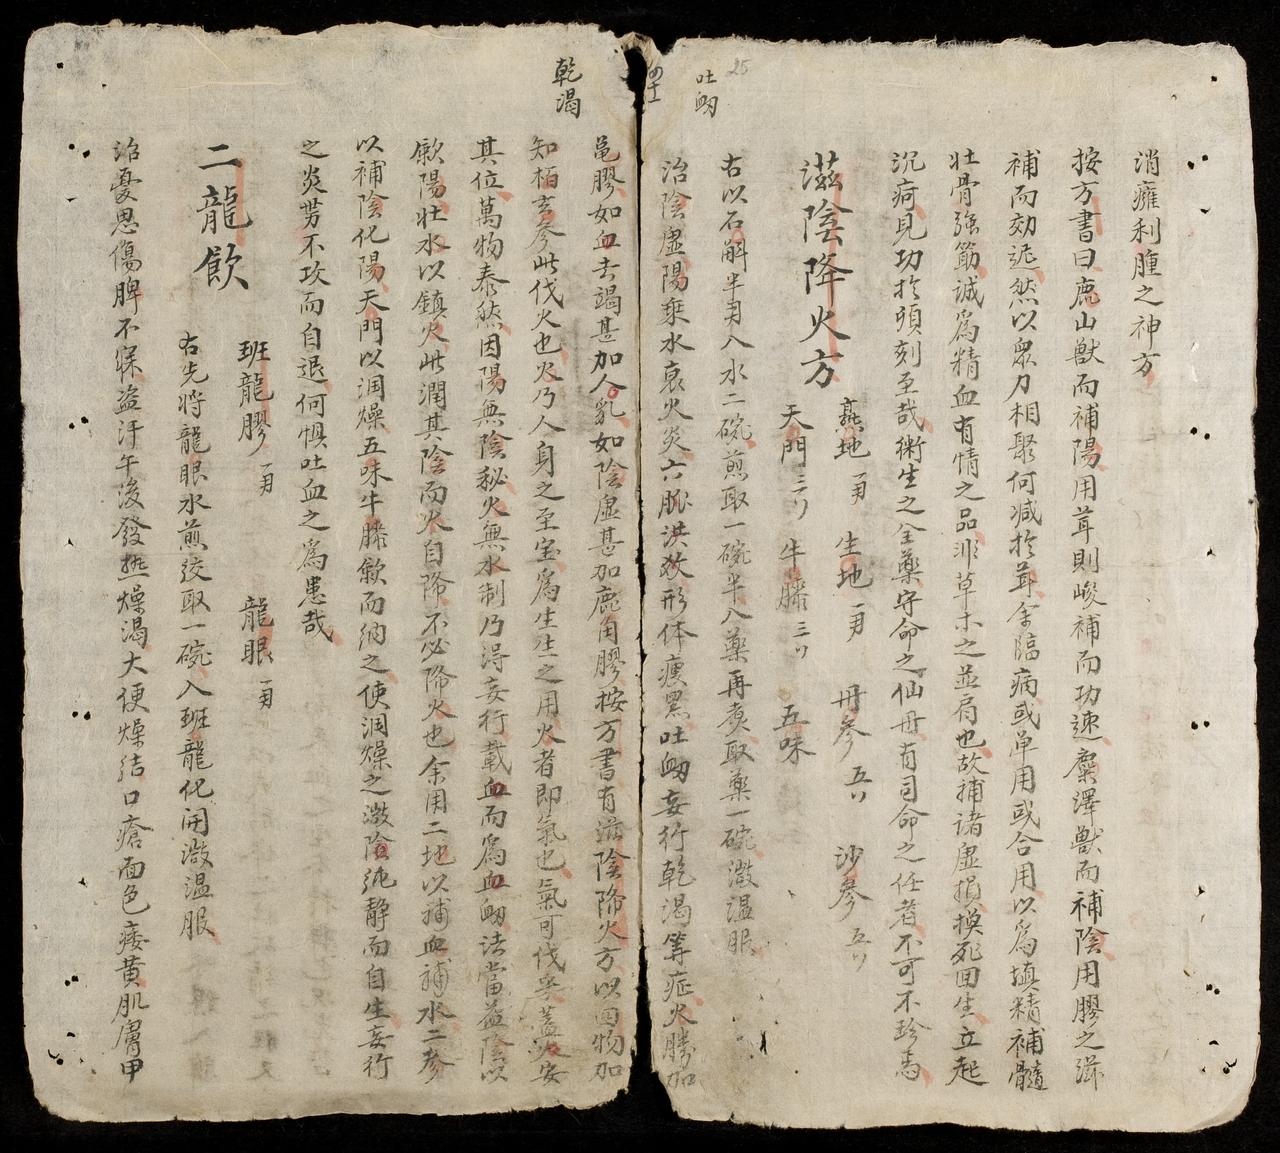 消癰利腫之神方
按方書曰鹿山獸而補陽用茸則峻補而功速麋澤獸而補陰用膠之滋
補而効遲然以衆力相聚何減於茸余臨病或单用或合用以爲填精補髓
壮骨強筋誠爲精血有情之品非草木之並肩也故補诸虛損換死回生立起
沉疴見功於頃刻至哉衛生之全藥守命之仙丹有司命之任者不可不珍焉
滋陰降火方
熟地 生地 丹參 五 沙參 五
天門 三 牛膝 三 五味
右以石斛半 入水二碗煎取一碗半入藥再煑取藥一碗溦温服
吐衂
治陰虛陽乘水衰火炎六脉洪 形体瘦黑吐衂妄行乾渴等症火勝加
25
黾膠如血去竭甚加人乳如陰虛甚加鹿角膠按方書有滋陰降火方以四物加
乾渴
知栢玄参此伐火也火乃人身之至宝爲生生之用火者即氣也氣可伐乎蓋火安
其位萬物泰然因陽無陰秘火無水制乃淂妄行載血而爲血衂法當益陰以
歛陽壮水以鎮火此潤其陰而火自降不必降火也余用二地以補血補水二参
以補陰化陽天門以润燥五味牛膝歛而納之使润燥之溦陰純静而自生妄行
之炎势不攻而自退何惧吐血之爲患哉
二龍飲
班龍膠 龍眼
右先将龍眼水煎绞取一碗入班龍化開溦温服
治憂思傷脾不寐盗汗午後發熱燥渴大便燥结口瘡面色痿黄肌膚甲